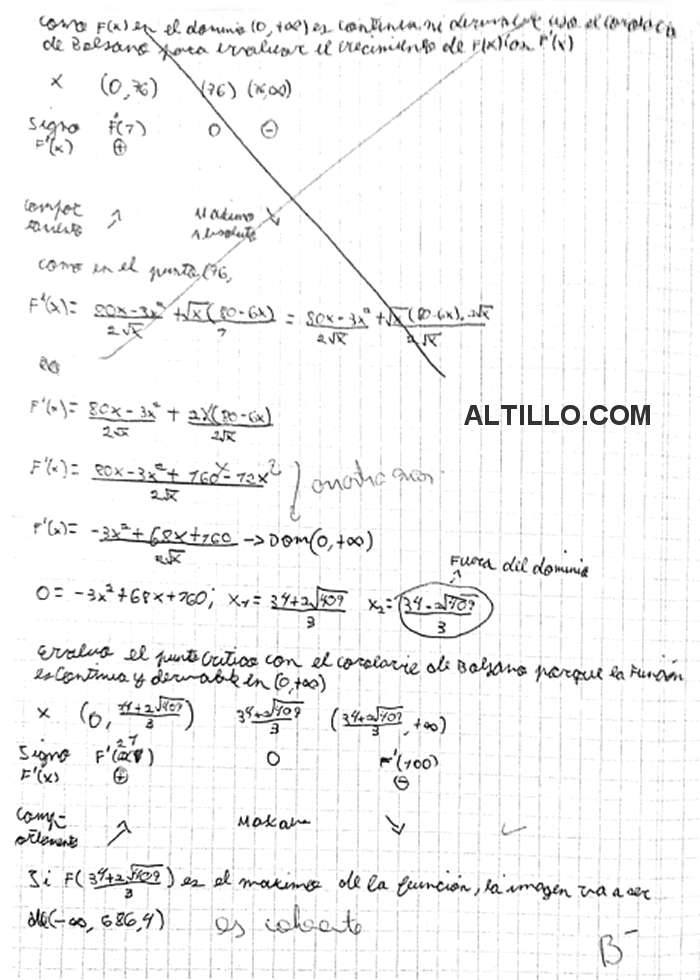 como F(x) en el dominio (0, +∞) es continua ni derivable uso el corolario
de Bolsano para evaluar el crecimiento de F(x) con F'(x)
x (0,76) (76) (76,∞)
Signo F'(7) 0 ⊖
F'(x) ⊕
Compor ↗ Maximo ↘
tamiento Absoluto
como en el punto (76,
F'(x) = 80x-3x²/2√x + √x(80-6x)/ = 80x-3x²/2√x + √x(80-6x).2√x/2√x
F'(x) = 80x-3x²/2√x + 2x(80-6x)/2√x
ALTILLO.COM
F'(x) = 80x-3x²+760x-72x²/2√x
F'(x) = -3x²+68x+760/2√x → Dom(0,+∞)
Fuera del dominio
0 = -3x²+68x+760; x₁ = 34+2√409/3 x₂ = 34-2√409/3
Evaluo el punto critico con el corolario de Bolsano porque la Función
es continua y derivable en (0,+∞)
x (0, 34+2√409/3) 34+2√409/3 (34+2√409/3, +∞)
Signo F'(27) 0 F'(100)
F'(x) ⊕ ⊖
Comp- ↗ ↘ ✓
ortamiento
Si F(34+2√409/3) es el maximo de la función, la imagen va a ser
de (-∞, 686,4) es coherente
B⁻